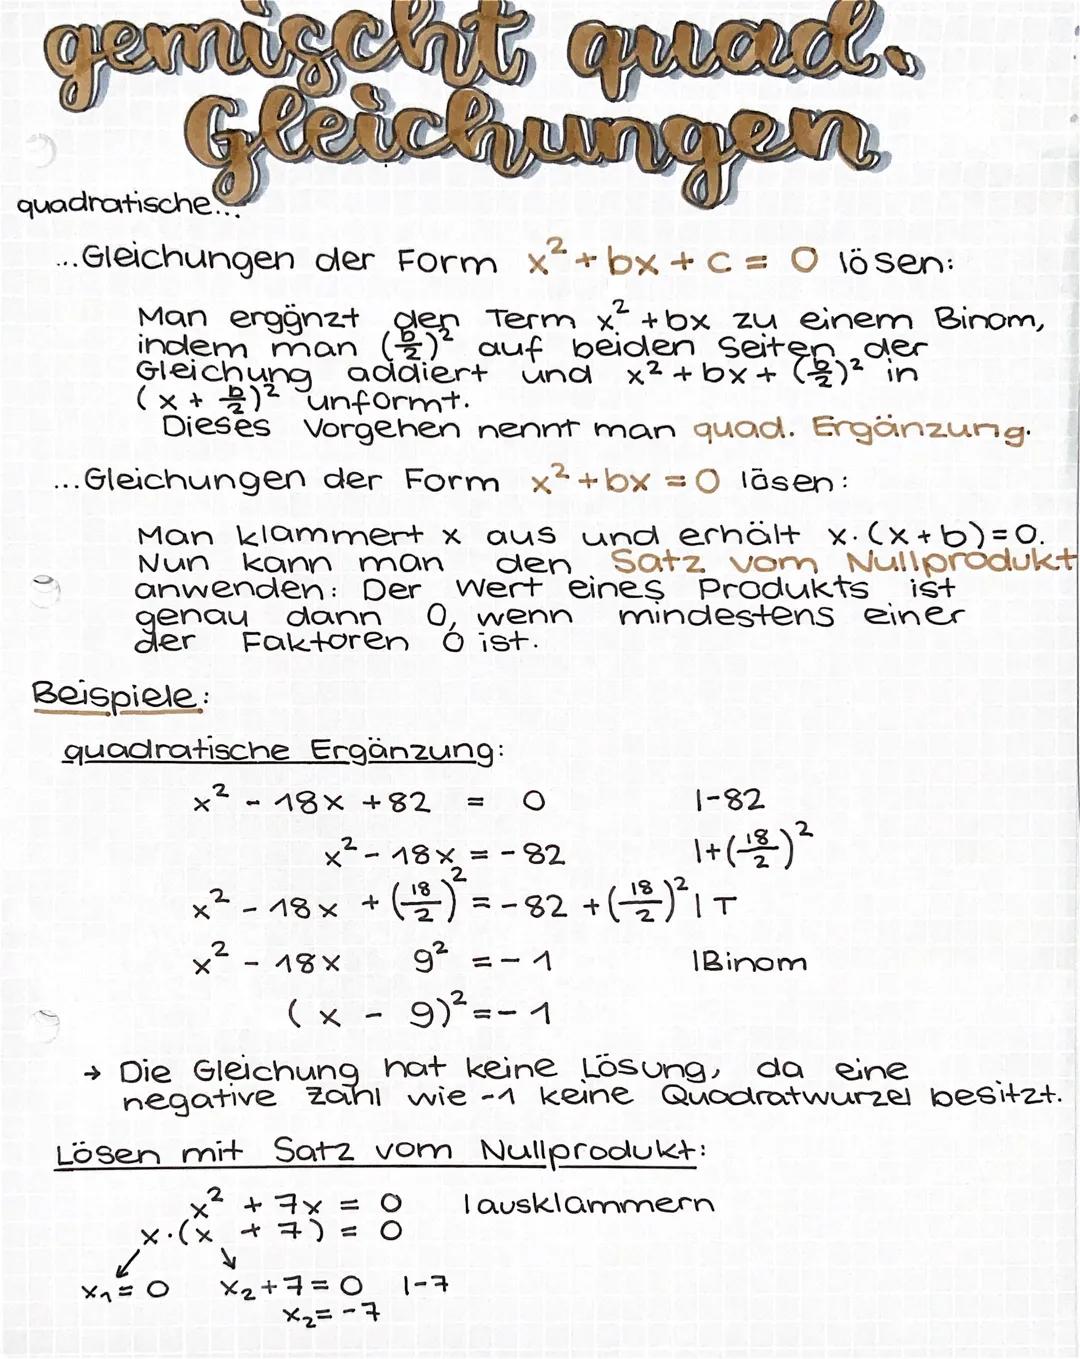 gemischt quad.
Gleichungen
quadratische...
...Gleichungen der Form x² + bx + c = 0 lösen:
Man ergänzt den Term x² + bx zu einem Binom,
indem man (b/2)² auf beiden Seiten der
Gleichung addiert und x² + bx + (b/2)² in
(x + b/2)² unformt.
Dieses Vorgehen nennt man quad. Ergänzung.
...Gleichungen der Form x² + bx = 0 lösen:
Man klammert x aus und erhält x·(x+b)=0.
Nun kann man den Satz vom Nullprodukt
anwenden: Der Wert eines Produkts ist
genau dann 0, wenn mindestens einer
der Faktoren 0 ist.
Beispiele:
quadratische Ergänzung:
x² - 18x + 82 = 0 |-82
x² - 18x = -82 |+(18/2)²
x² - 18x + (18/2)² = -82 + (18/2)² | T
x² - 18x 9² = -1 |Binom
(x - 9)² = -1
→ Die Gleichung hat keine Lösung, da eine
negative Zahl wie -1 keine Quadratwurzel besitzt.
Lösen mit Satz vom Nullprodukt:
x² + 7x = 0 |ausklammern
x·(x + 7) = 0
↙ ↘
x₁ = 0 x₂ + 7 = 0 |-7
x₂ = -7